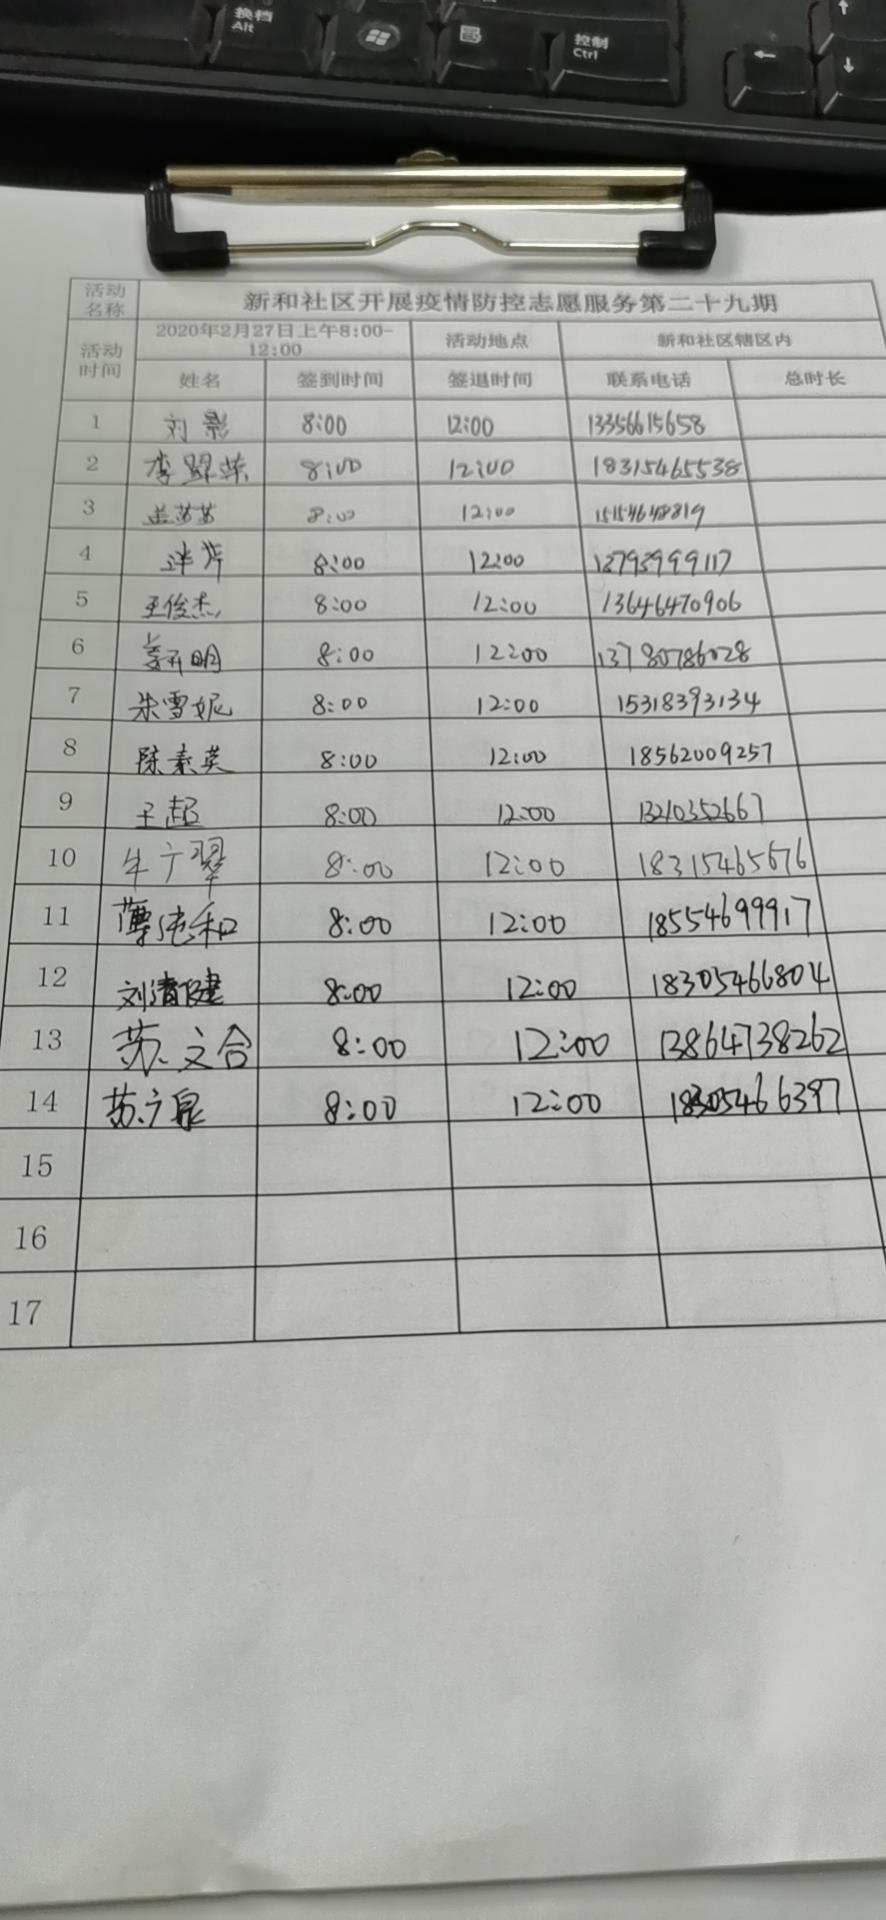 换档
Alt
控制
Ctrl
活动名称 新和社区开展疫情防控志愿服务第二十九期
活动时间 2020年2月27日上午8:00-12:00 活动地点 新和社区辖区内
姓名 签到时间 签退时间 联系电话 总时长
1 刘影 8:00 12:00 13356615658
2 李 8:00 12:00 18315465538
3 盖苏苏 8:00 12:00 15154648819
4 8:00 12:00 13793999117
5 王俊杰 8:00 12:00 13646470906
6 姜开明 8:00 12:00 13780786028
7 朱雪妮 8:00 12:00 15318393134
8 陈素英 8:00 12:00 18562009257
9 王超 8:00 12:00 13210352667
10 牛广翠 8:00 12:00 18315465676
11 薄纯和 8:00 12:00 18554699917
12 刘清健 8:00 12:00 18305466804
13 苏文合 8:00 12:00 13864738262
14 苏广泉 8:00 12:00 18305466397
15
16
17